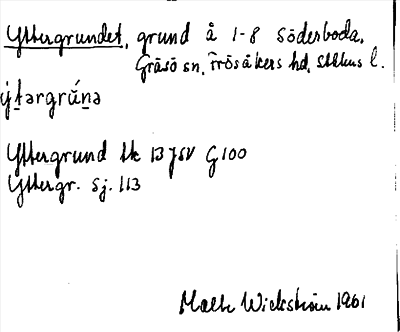 Yttergrundet, grund å 1-8 Söderboda,
Gräsö sn, Frösåkers hd, Sthlms l.
ýt̠ərgrǘn̠ə
Yttergrund Ek 13 JSV G100
Yttergr. Sj. 113
Malte Wickström 1961